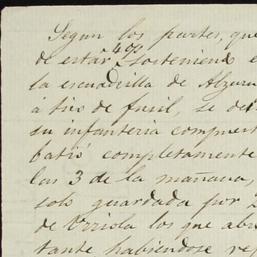 Segun los partes, que
de estar sosteniend
la escuadrilla de Alzuru
á tiro de fusil, se de
su infanteria compuest
batió completamente
las 3 de la mañana,
solo guardada por
de Urriola los que abr
tante habiendose re